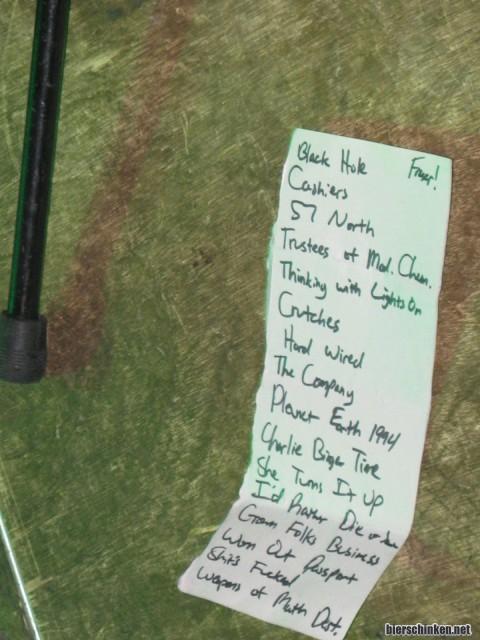 Black Hole Fraser!
Cashiers
57 North
Trustees of Mod. Chem.
Thinking with Lights On
Crutches
Hard Wired
The Company
Planet Earth 1994
Charlie Biger Time
She Turns It Up
I'd Rather Die
Grown Folks Business
Worn Out Passport
Shit's Fucked
Weapons of Math Dest.
bierschinken.net